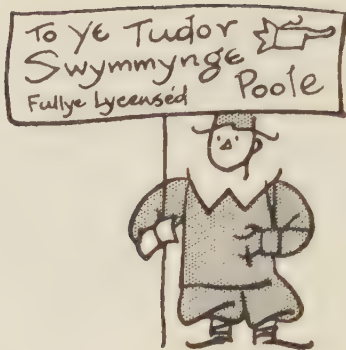 To Ye Tudor
Swymmynge
Poole
Fullye Lycensèd